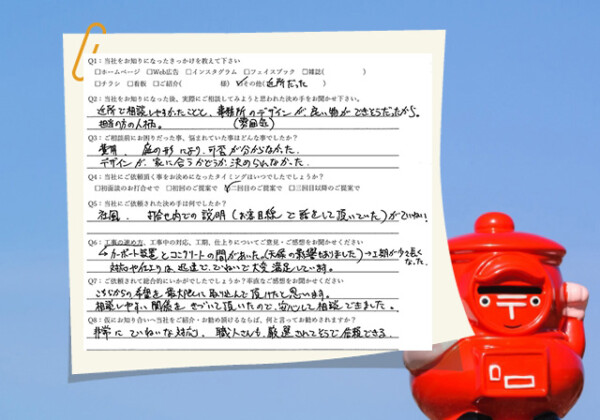 Q1：当社をお知りになったきっかけを教えて下さい
□ホームページ □Web広告 □インスタグラム □フェイスブック □雑誌( )
□チラシ □看板 □ご紹介( 様) ☑その他(近所だった)
Q2：当社をお知りになった後、実際にご相談してみようと思われた決め手をお聞かせ下さい。
近所で相談しやすかったことと、事務所のデザインが良い物ができそうだったから。
担当の方の人柄。 (雰囲気)
Q3：ご相談前にお困りだった事、悩まれていた事はどんな事でしたか？
費用、庭の形により、可否が分からなかった。
デザインが家に合うかどうか決められなかった。
Q4：当社にご依頼頂く事をお決めになったタイミングはいつでしたでしょうか？
□初面談のお打合せで □初回のご提案で ☑二回目のご提案で □三回目以降のご提案で
Q5：当社にご依頼された決め手は何でしたか？
社風、打合せ内での説明(お客目線で話をして頂いていた)がていねい
Q6：工事の進め方、工事中の対応、工期、仕上りについてご意見・ご感想をお聞かせください
カーポート設置とコンクリートの間があいた。(天候の影響もありました)→工期が少々長くなった。
対応や仕上は迅速で、ていねいで大変満足しています。
Q7：ご依頼されて総合的にいかがでしたでしょうか？率直なご感想をお聞かせください
こちらからの希望を最大限に取り込んで頂けたと思います。
相談しやすい関係をきづいて頂いたので、安心して相談できました。
Q8：仮にお知り合いへ当社をご紹介・お勧め頂けるならば、何と言ってお勧めされますか？
非常にていねいな対応。職人さんも、厳選されてそうで信頼できる。